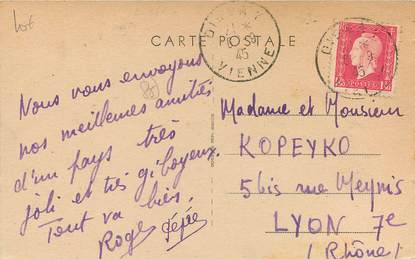 lot
CARTE POSTALE
VIENNE
45
Nous vous envoyons
nos meilleures amitiés
d'un pays très
joli et très giboyeux.
Tout va bien.
Roger
Madame et Monsieur
KOPEYKO
56is rue Meynis
LYON 7e
(Rhône)